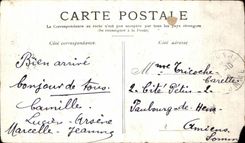 CARTE POSTALE
La Correspondance au recto n'est pas acceptée par tous les pays étrangers
(Se renseigner à la Poste)
Côté correspondance.
Côté adresse.
Bien arrivé
Bonjour de tous
Camille
Lucien Arsène
Marcelle Jeanne
Mme Tricoche-
Carette
2. Cité Pétin-2
Faubourg de Hem
Amiens
Somme